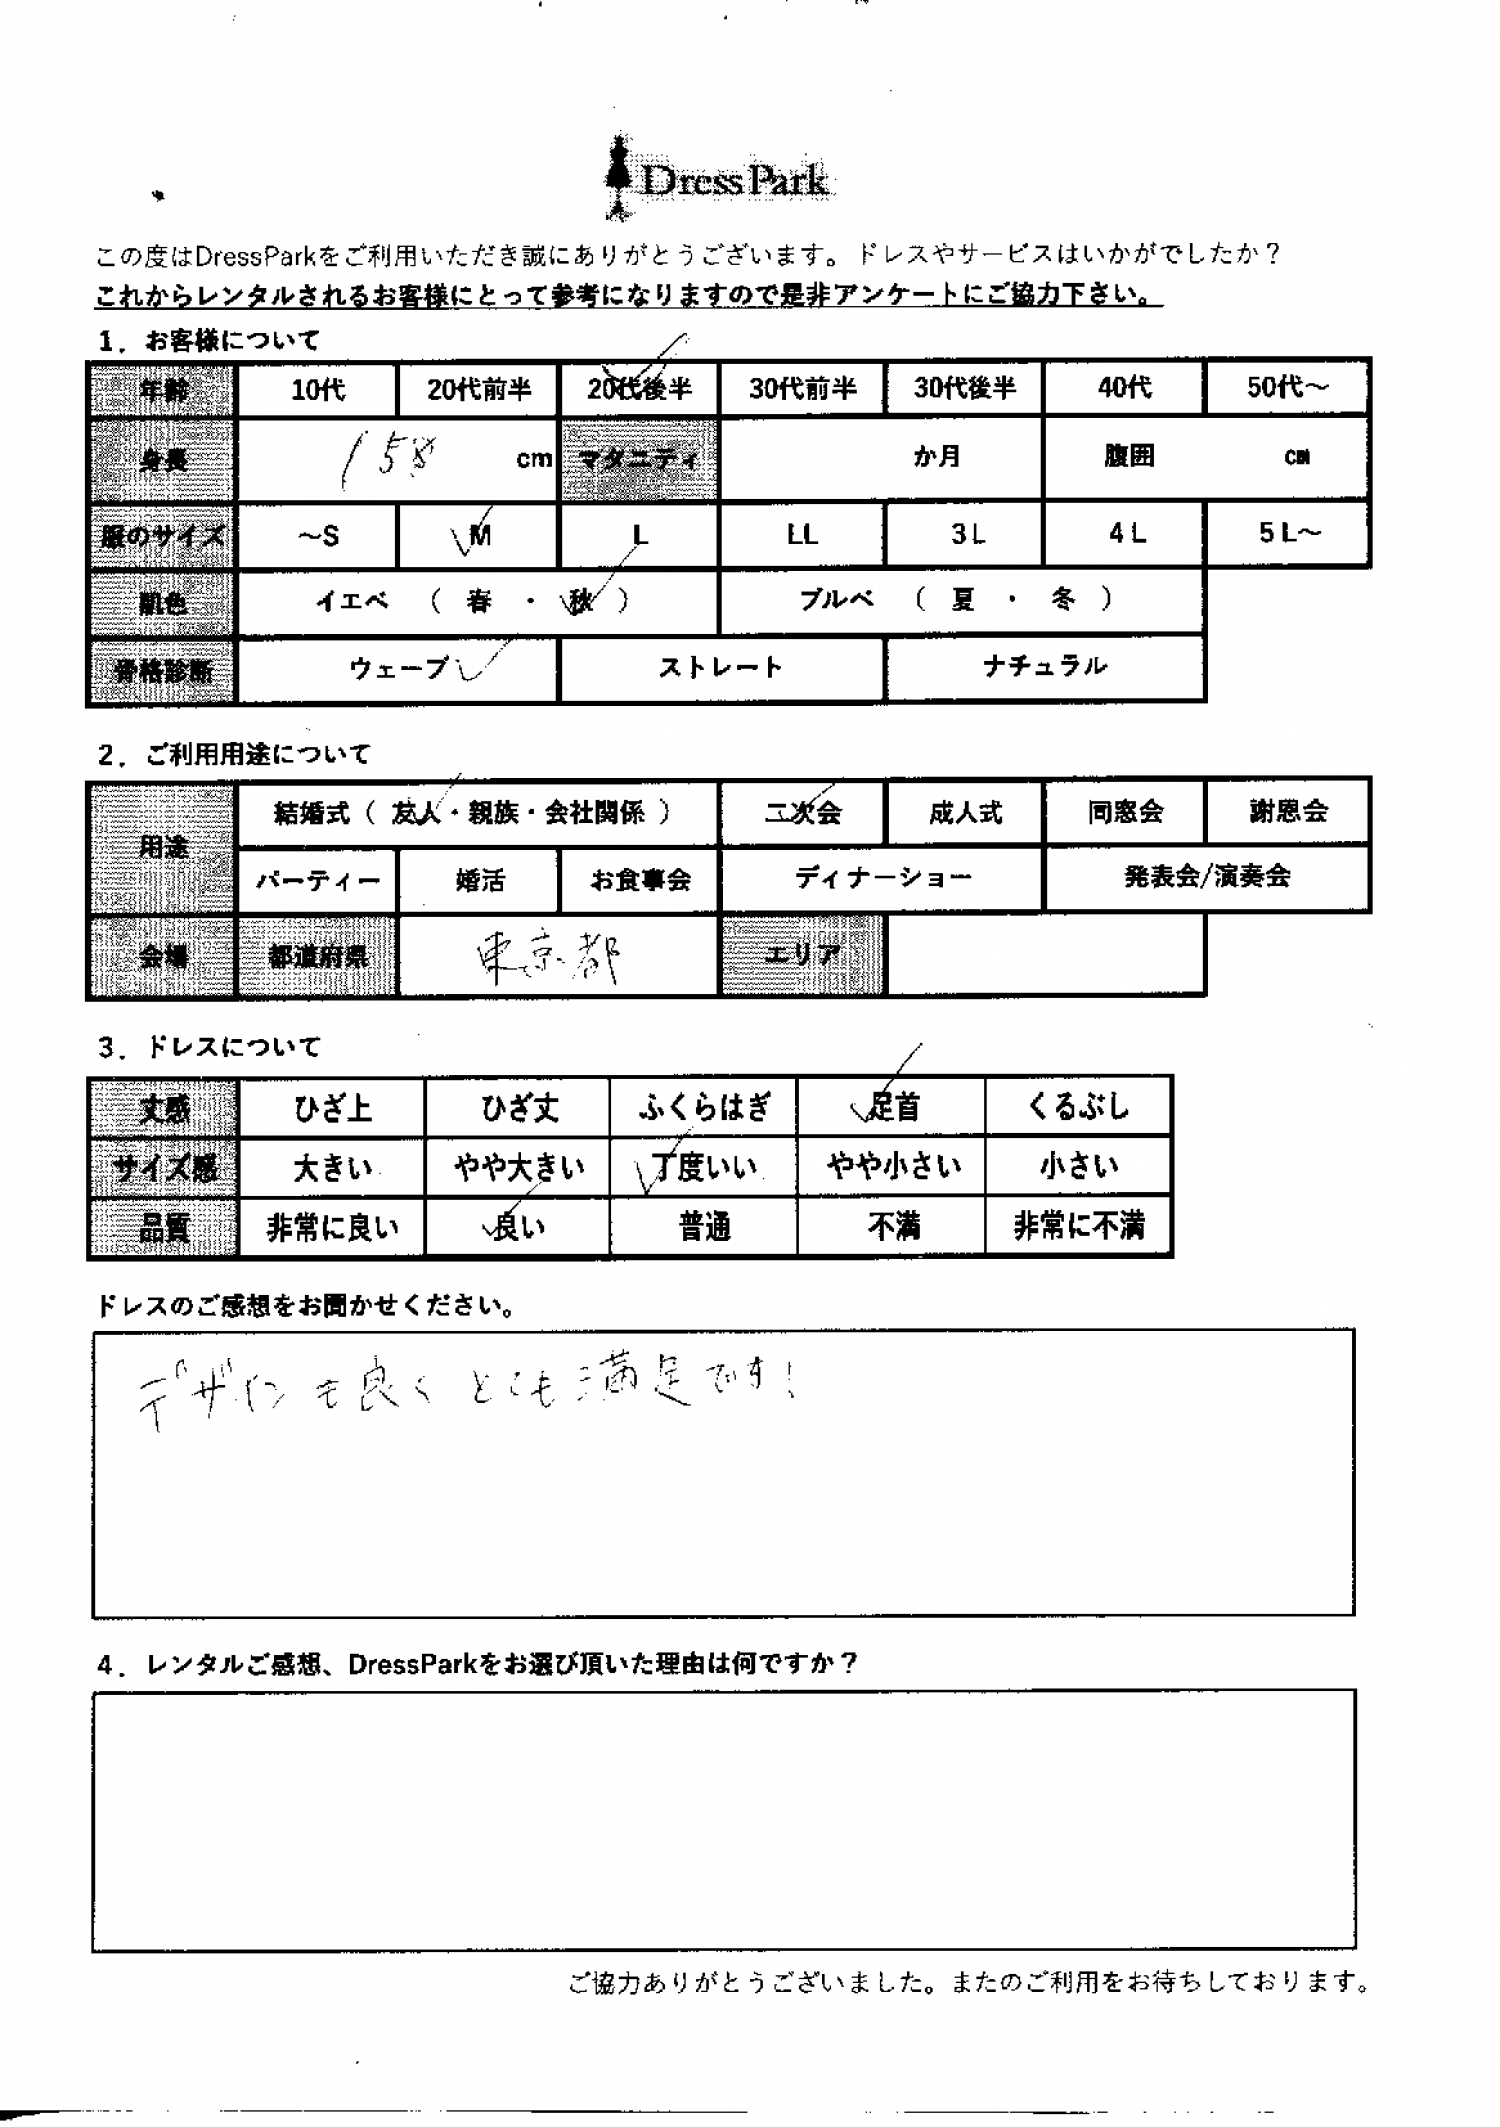 DressPark
この度はDressParkをご利用いただき誠にありがとうございます。ドレスやサービスはいかがでしたか？
これからレンタルされるお客様にとって参考になりますので是非アンケートにご協力下さい。
1．お客様について
年齢 10代 20代前半 20代後半 30代前半 30代後半 40代 50代～
身長 158 cm マタニティ か月 腹囲 cm
服のサイズ ～S M L LL 3L 4L 5L～
肌色 イエベ （ 春 ・ 秋 ） ブルベ （ 夏 ・ 冬 ）
骨格診断 ウェーブ ストレート ナチュラル
2．ご利用用途について
用途 結婚式（ 友人・親族・会社関係 ） 二次会 成人式 同窓会 謝恩会
パーティー 婚活 お食事会 ディナーショー 発表会/演奏会
会場 都道府県 東京都 エリア
3．ドレスについて
丈感 ひざ上 ひざ丈 ふくらはぎ 足首 くるぶし
サイズ感 大きい やや大きい 丁度いい やや小さい 小さい
品質 非常に良い 良い 普通 不満 非常に不満
ドレスのご感想をお聞かせください。
デザインも良くとても満足です！
4．レンタルご感想、DressParkをお選び頂いた理由は何ですか？
ご協力ありがとうございました。またのご利用をお待ちしております。